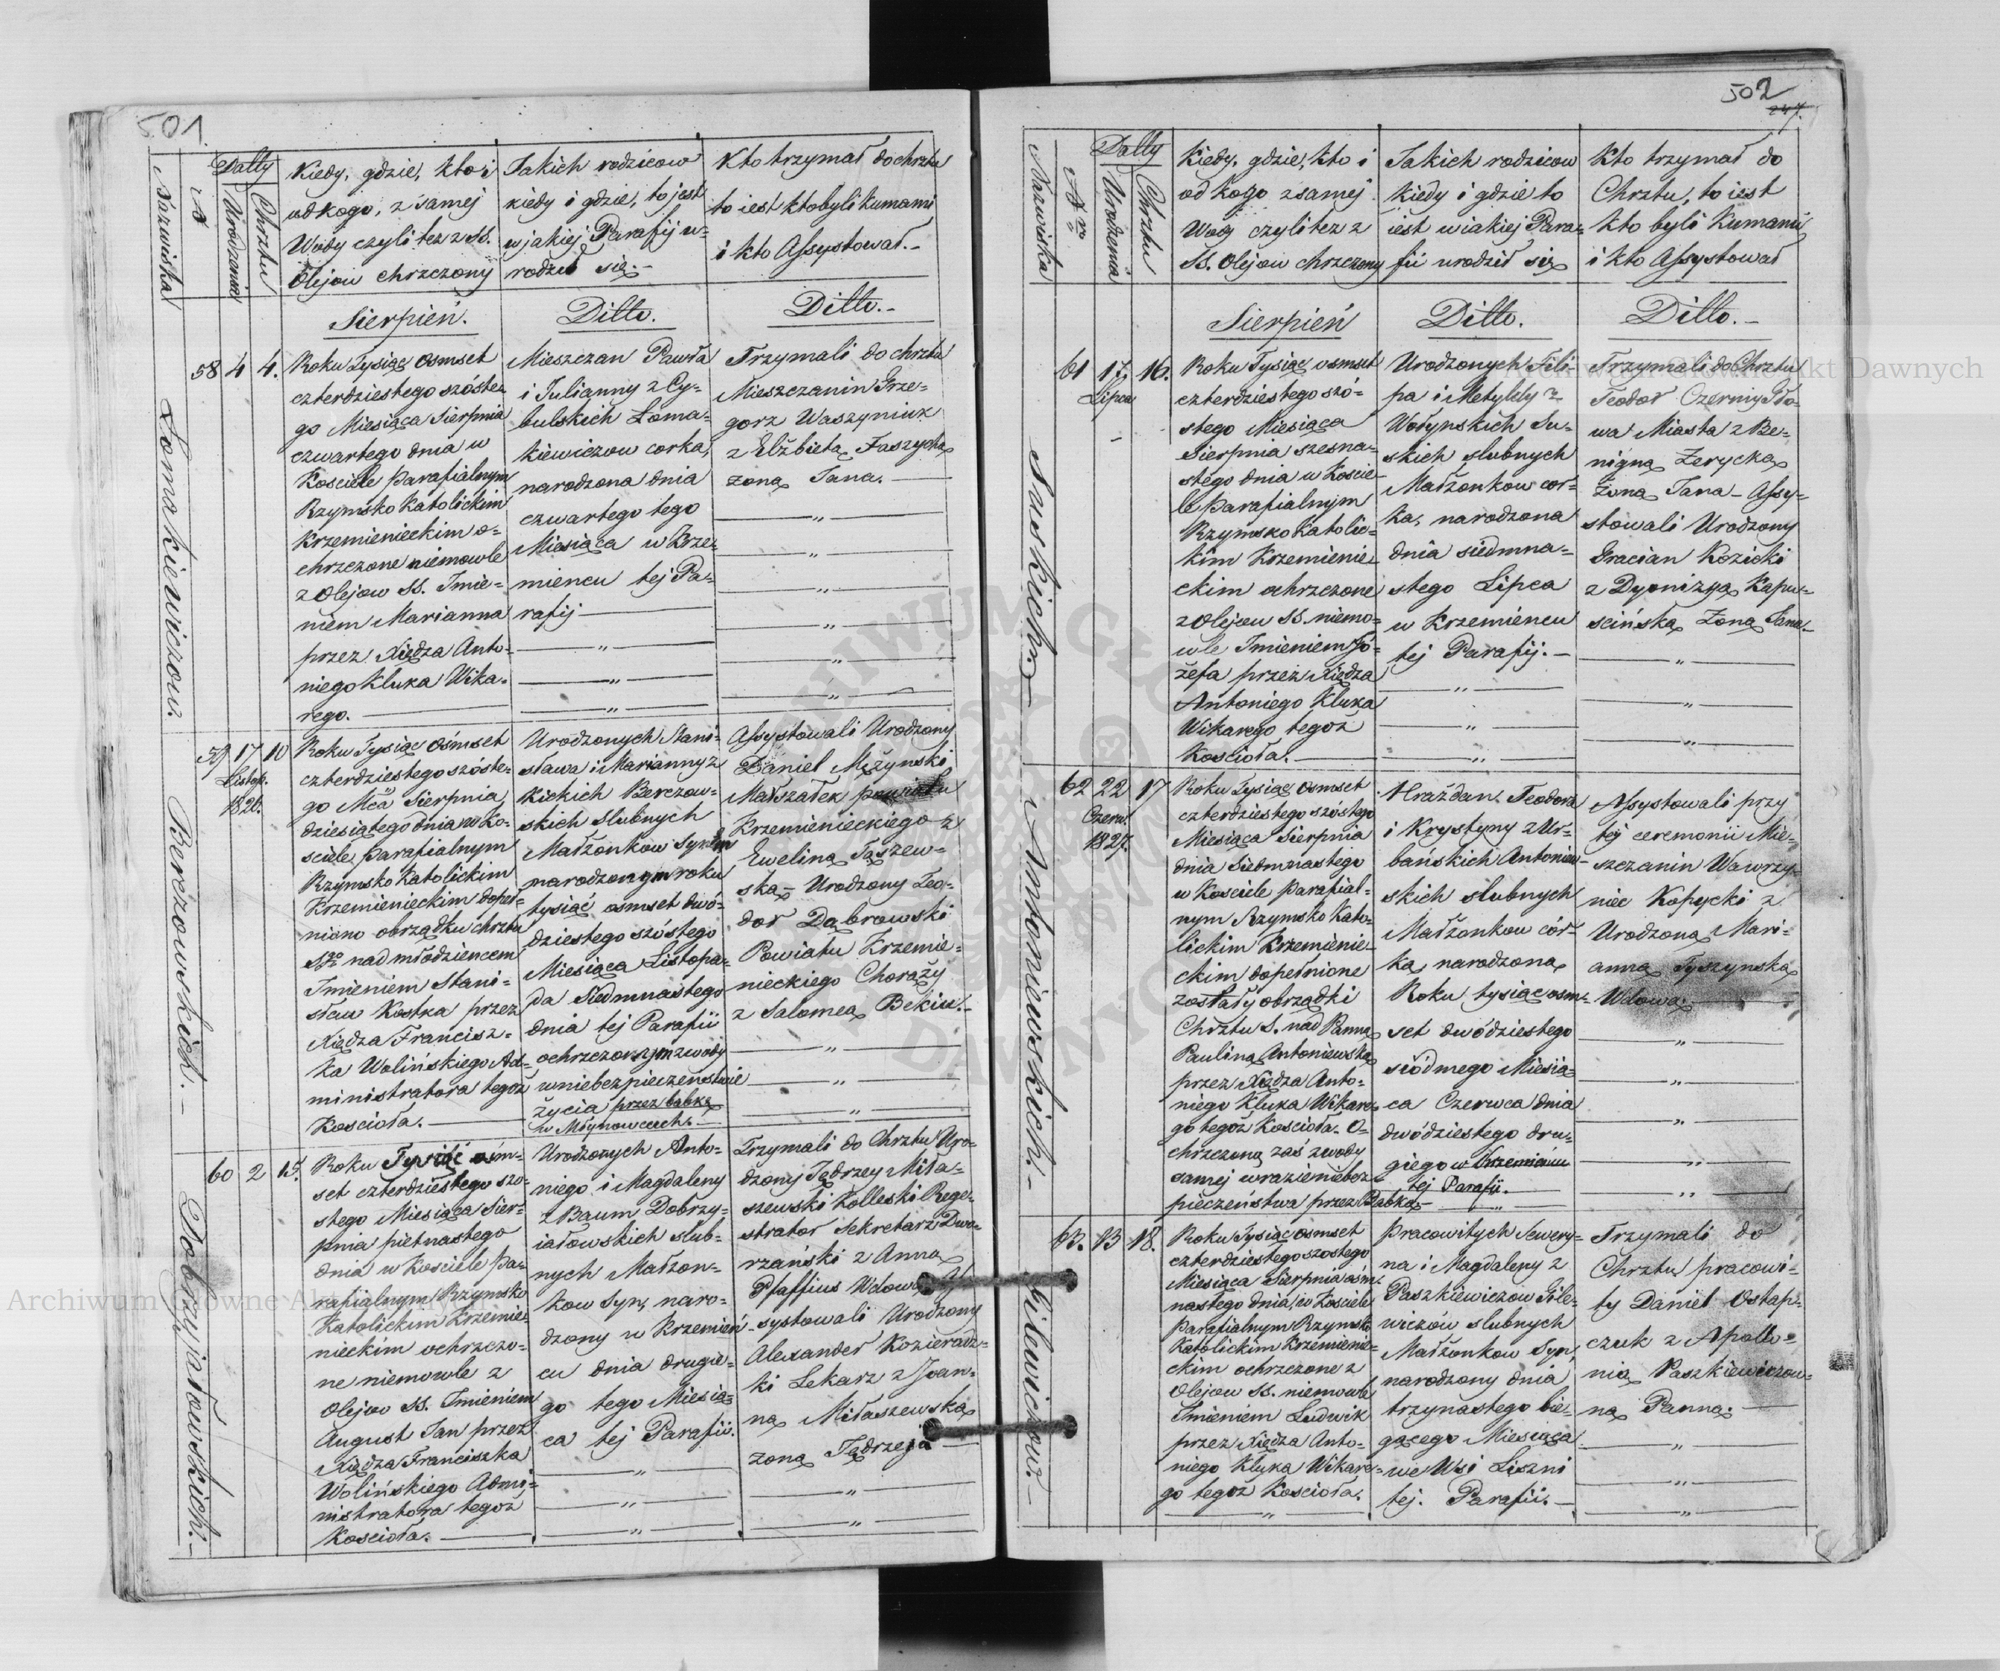 501
Nazwiska
N
Datty
Urodzenia
Chrztu
Kiedy, gdzie, kto i
od kogo, z samej
Wody czyli też z SS.
Olejow chrzczony
Jakich rodzicow
kiedy i gdzie, to jest
w jakiej Parafij u-
rodził się.-
Kto trzymał do chrztu
to iest kto byli kumami
i kto Assystował.-
Sierpień.
Ditto.
Ditto.-
Łomakiewiczow.
58 4 4.
Roku Tysiąc osmset
czterdziestego szóste-
go Miesiąca Sierpnia
czwartego dnia w
Kosciele parafialnym
Rzymsko Katolickim
Krzemienieckim o-
chrzczone niemowle
z Olejow SS. Imie-
niem Marianna
przez Xiędza Anto-
niego Kluka Wika-
rego.
Mieszczan Pawła
i Julianny z Cy-
bulskich Łoma-
kiewiczow corka,
narodzona dnia
czwartego tego
Miesiąca w Krze-
miencu tej Pa-
rafij
Trzymali do chrztu
Mieszczanin Grze-
gorz Waszyniuk
z Elżbietą Faszycką
żoną Jana.
Berezowskich.-
59 17 10
Listop.
1826.
Roku Tysiąc osmset
czterdziestego szóste-
go Mca Sierpnia
dziesiątego dnia w Ko-
sciele parafialnym
Rzymsko Katolickim
Krzemienieckim dopeł-
niono obrządku chrztu
Sgo nad młodziencem
Imieniem Stani-
sław Kostka przez
Xiędza Francisz-
ka Wolińskiego Ad-
ministratora tegoż
Koscioła.
Urodzonych Stani-
sława i Marianny z
Kickich Berezow-
skich Slubnych
Małżonkow Synem
narodzonym roku
tysiąc osmset dwó-
dziestego szóstego
Miesiąca Listopa-
da Siedmnastego
dnia tej Parafii
ochrzczonym z wody
w niebezpieczenstwie
życia przez babkę
w Młynowcach.-
Assystowali Urodzony
Daniel Mężynski
Marszałek powiatu
Krzemienieckiego z
Eweliną Taszew-
ską - Urodzony Teo-
dor Dąbrowski
Powiatu Krzemie-
nieckiego Chorąży
z Salomeą Bekiu.-
Dobrzyiałowskich.-
60 2 15.
Roku Tysiąc osm-
set czterdziestego szo-
stego Miesiąca Sier-
pnia pietnastego
dnia w Kosciele pa-
rafialnym Rzymsko
Katolickim Krzemie-
nieckim ochrzczo-
ne niemowle z
Olejow SS. Imieniem
August Jan przez
Xiędza Franciszka
Wolińskiego Admi-
nistratora tegoż
Kosciola.
Urodzonych Anto-
niego i Magdaleny
z Baum Dobrzy-
iałowskich slub-
nych Małżon-
kow Syn, naro-
dzony w Krzemień-
cu dnia drugie-
go tego Miesią-
ca tej Parafii.
Trzymali do Chrztu Uro-
dzony Jędrzey Miła-
szewski Kolleski Rege-
strator Sekretarz Dwo-
rzański z Anną
Pfaffius Wdową As-
systowali Urodzony
Alexander Kozieradz-
ki Lekarz z Joan-
ną Miłaszewską
żoną Jędrzeja
502
247.
Nazwiska
Nr
Datty
Urodzenia
Chrztu
Kiedy, gdzie, kto i
od kogo z samej
Wody czyli też z
SS. Olejow chrzczony
Jakich rodzicow
kiedy i gdzie to
iest w iakiej Para-
fii urodził się
Kto trzymał do
Chrztu, to iest
kto byli kumami
i kto Assystował
Sierpień
Ditto.
Ditto.-
Suskich.-
61 17 16.
Lipca
Roku Tysiąc osmset
czterdziestego szó-
stego Miesiąca
Sierpnia szesna-
stego dnia w Koscie-
le Parafialnym
Rzymsko Katolic-
kim Krzemienie-
ckim ochrzczone
z Olejow SS. niemo-
wle Imieniem Jó-
zefa przez Xiędza
Antoniego Kluka
Wikarego tegoż
Kosciola.
Urodzonych Fili-
pa i Metyldy z
Wołynskich Su-
skich slubnych
Małżonkow cor-
ka, narodzona
dnia siedmna-
stego Lipca
w Krzemiencu
tej Parafij.-
Trzymali do Chrztu
Teodor Czerniy Gło-
wa Miasta z Be-
nigną Zerycką
żoną Jana - Assy-
stowali Urodzony
Gracian Kozicki
z Dyonizyą Kapu-
scińską Zoną Jana.-
Antoniewskich.-
62 22 17
Czerw.
1827.
Roku Tysiąc Osmset
czterdziestego szóstego
Miesiąca Sierpnia
dnia Siedmnastego
w Kosciele parafial-
nym Rzymsko Kato-
lickim Krzemienie-
ckim dopełnione
zostały obrządki
Chrztu S. nad Panną
Pauliną Antoniewską
przez Xiędza Anto-
niego Kluka Wikare-
go tegoż Kosciola. O-
chrzczoną zaś z wody
samej w razie niebez-
pieczeństwa przez Babkę.-
Hrażdan Teodora
i Krystyny z Ur-
bańskich Antoniew-
skich slubnych
Małżonkow cór-
ką narodzoną
Roku tysiąc osm-
set dwódziestego
siódmego Miesią-
ca Czerwca dnia
dwódziestego dru-
giego w Krzemieńcu
tej Parafii.
Assystowali przy
tej ceremonii Mie-
szczanin Wawrzy-
niec Kopycki z
Urodzoną Mari-
anną Tyszynską
Wdową.
Gilewiczow.-
63. 13 18.
Roku Tysiąc osmset
czterdziestego szostego
Miesiąca Sierpnia osm-
nastego dnia, w Kosciele
Parafialnym Rzymsko
Katolickim Krzemienie-
ckim ochrzczone z
Olejow SS. niemowle
Imieniem Ludwik
przez Xiędza Anto-
niego Kluka Wikare-
go tegoż Kosciola.
Pracowitych Sewery-
na i Magdaleny z
Paszkiewiczow Gile-
wiczow slubnych
Małżonkow Syn,
narodzony dnia
trzynastego bie-
gącego Miesiąca
we Wsi Liszni
tej. Parafii.-
Trzymali do
Chrztu pracowi-
ty Daniel Ostap-
czuk z Apollo-
nią Paszkiewiczow-
ną Panną.
Archiwum Główne Akt Dawnych
Archiwum Główne Akt Dawnych